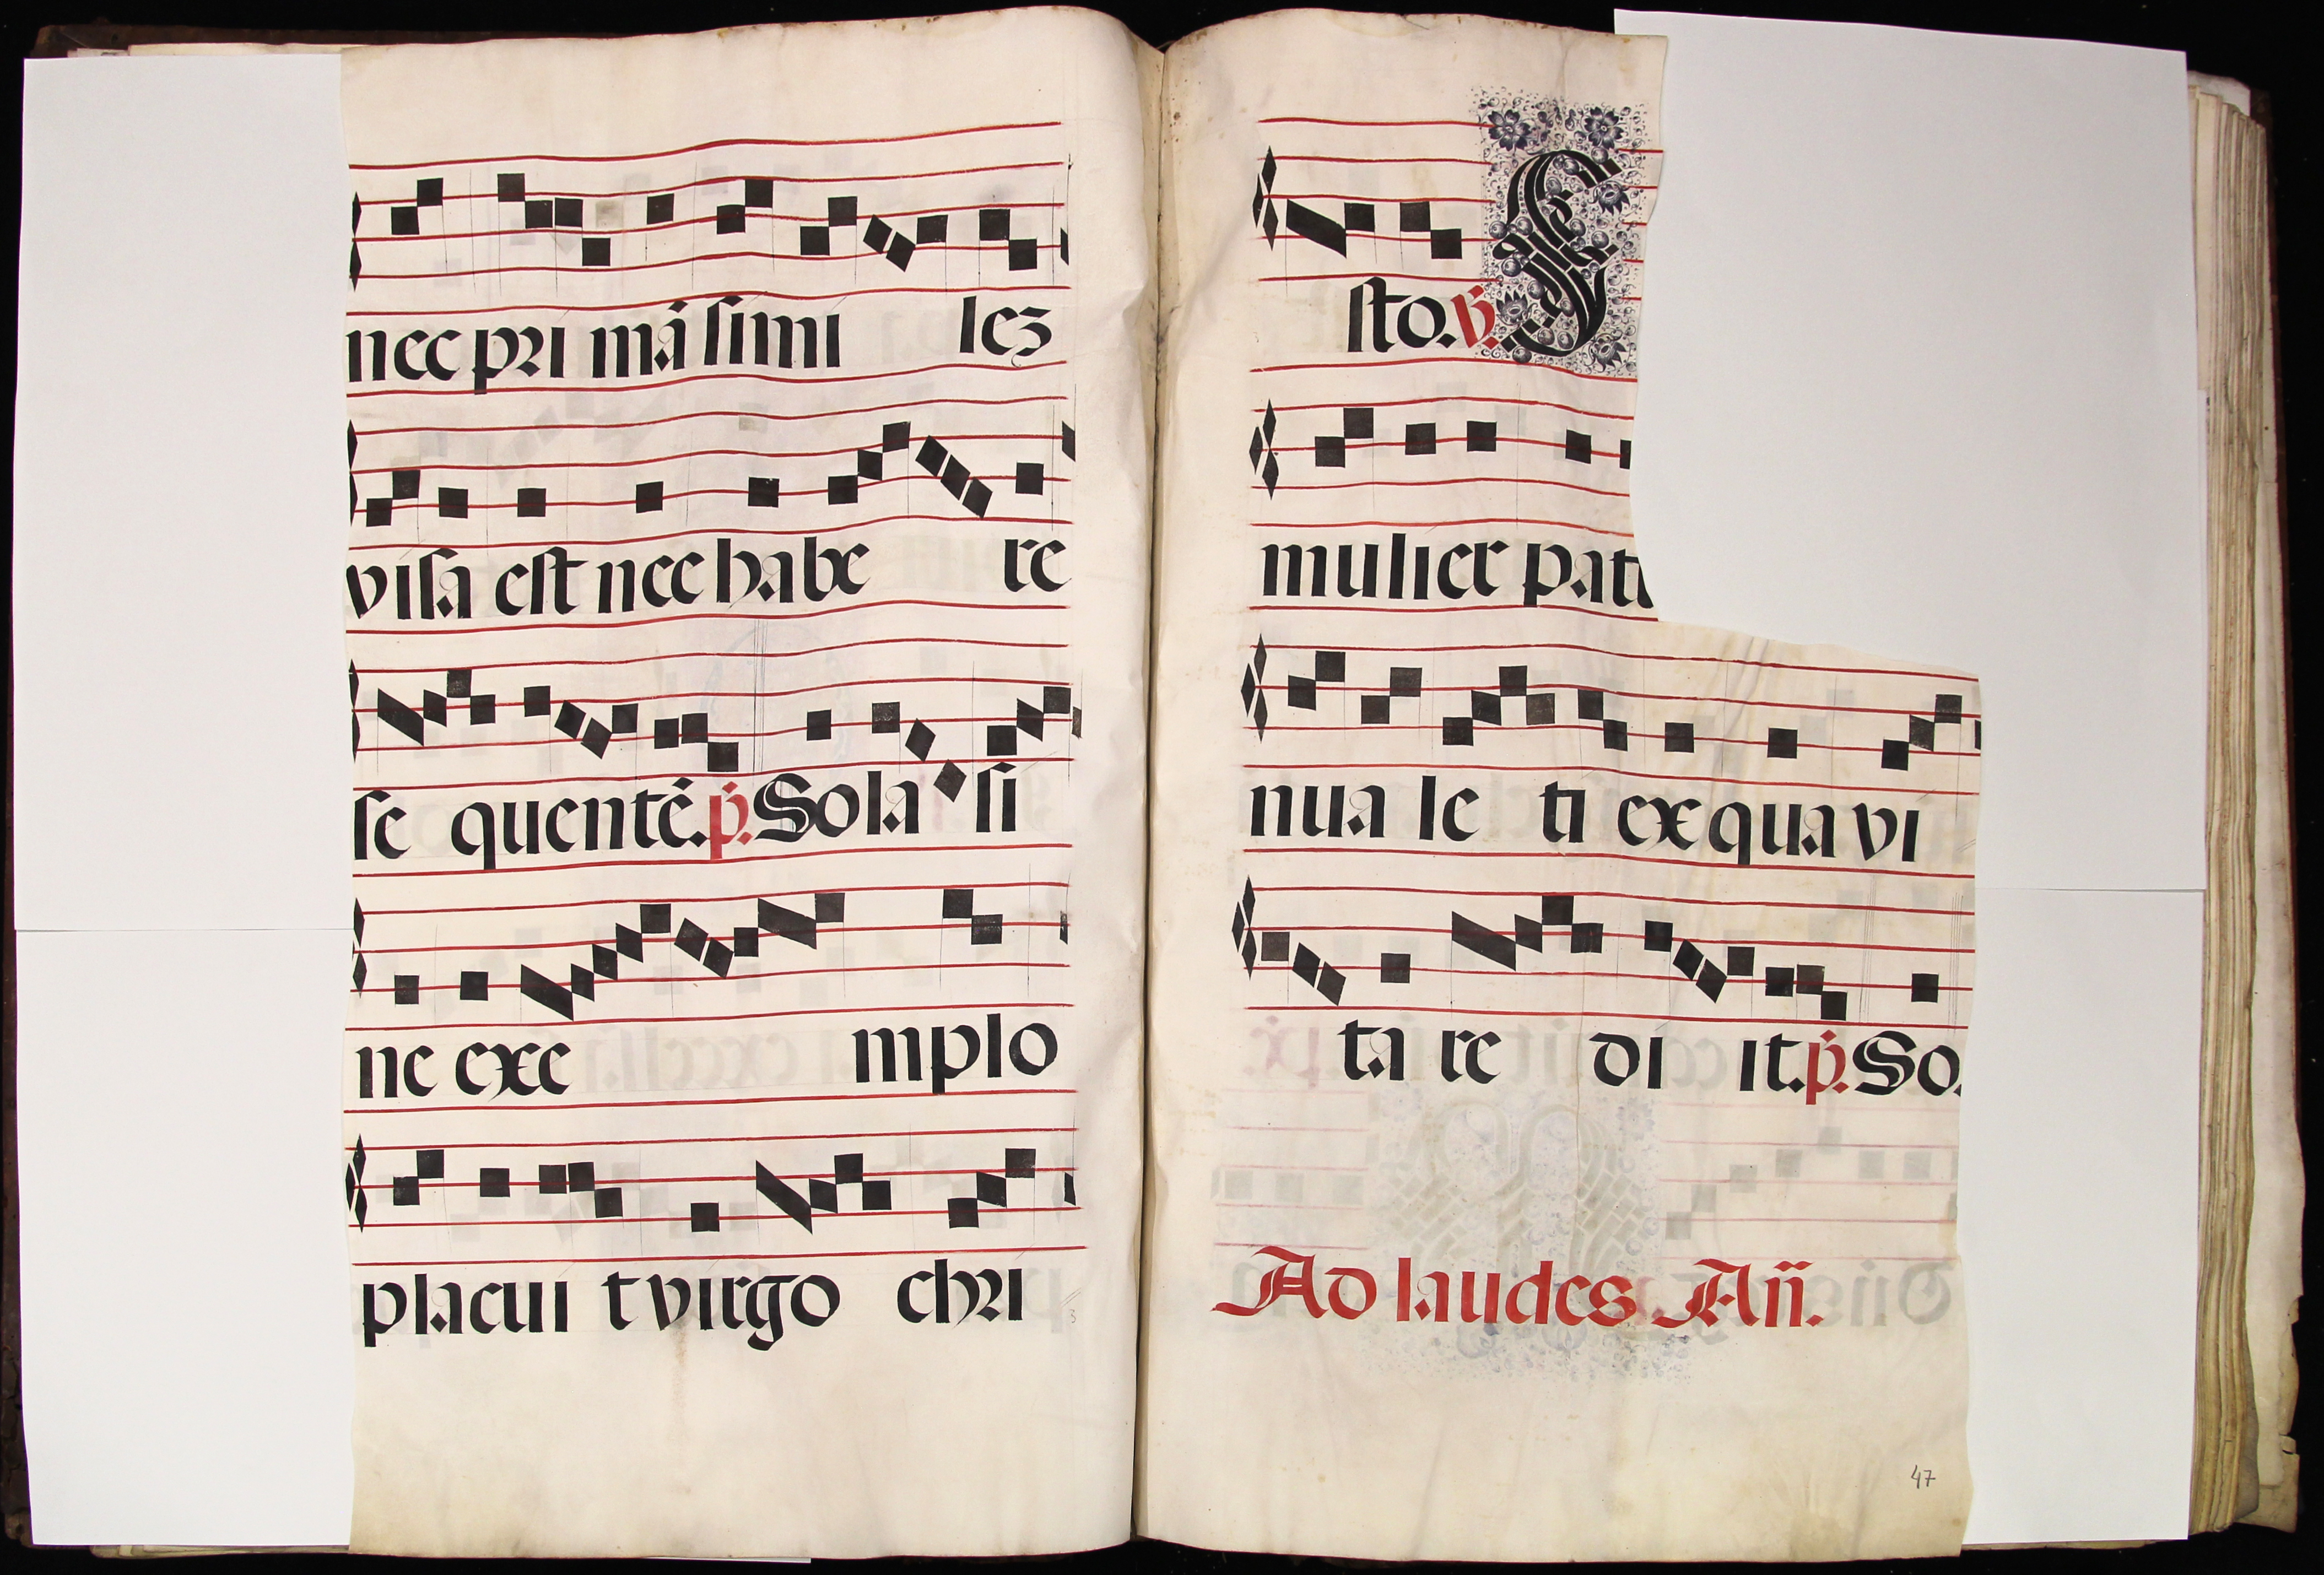 nec pri mā simi lez
visa est nec habe re
se quentē. p̄. Sola si
ne exe mplo
placui t virgo chri
sto. v̄.
mulier pat
nua le ti ex qua vi
ta re di it. p̄. So.
Ad laudes. Añ.
47